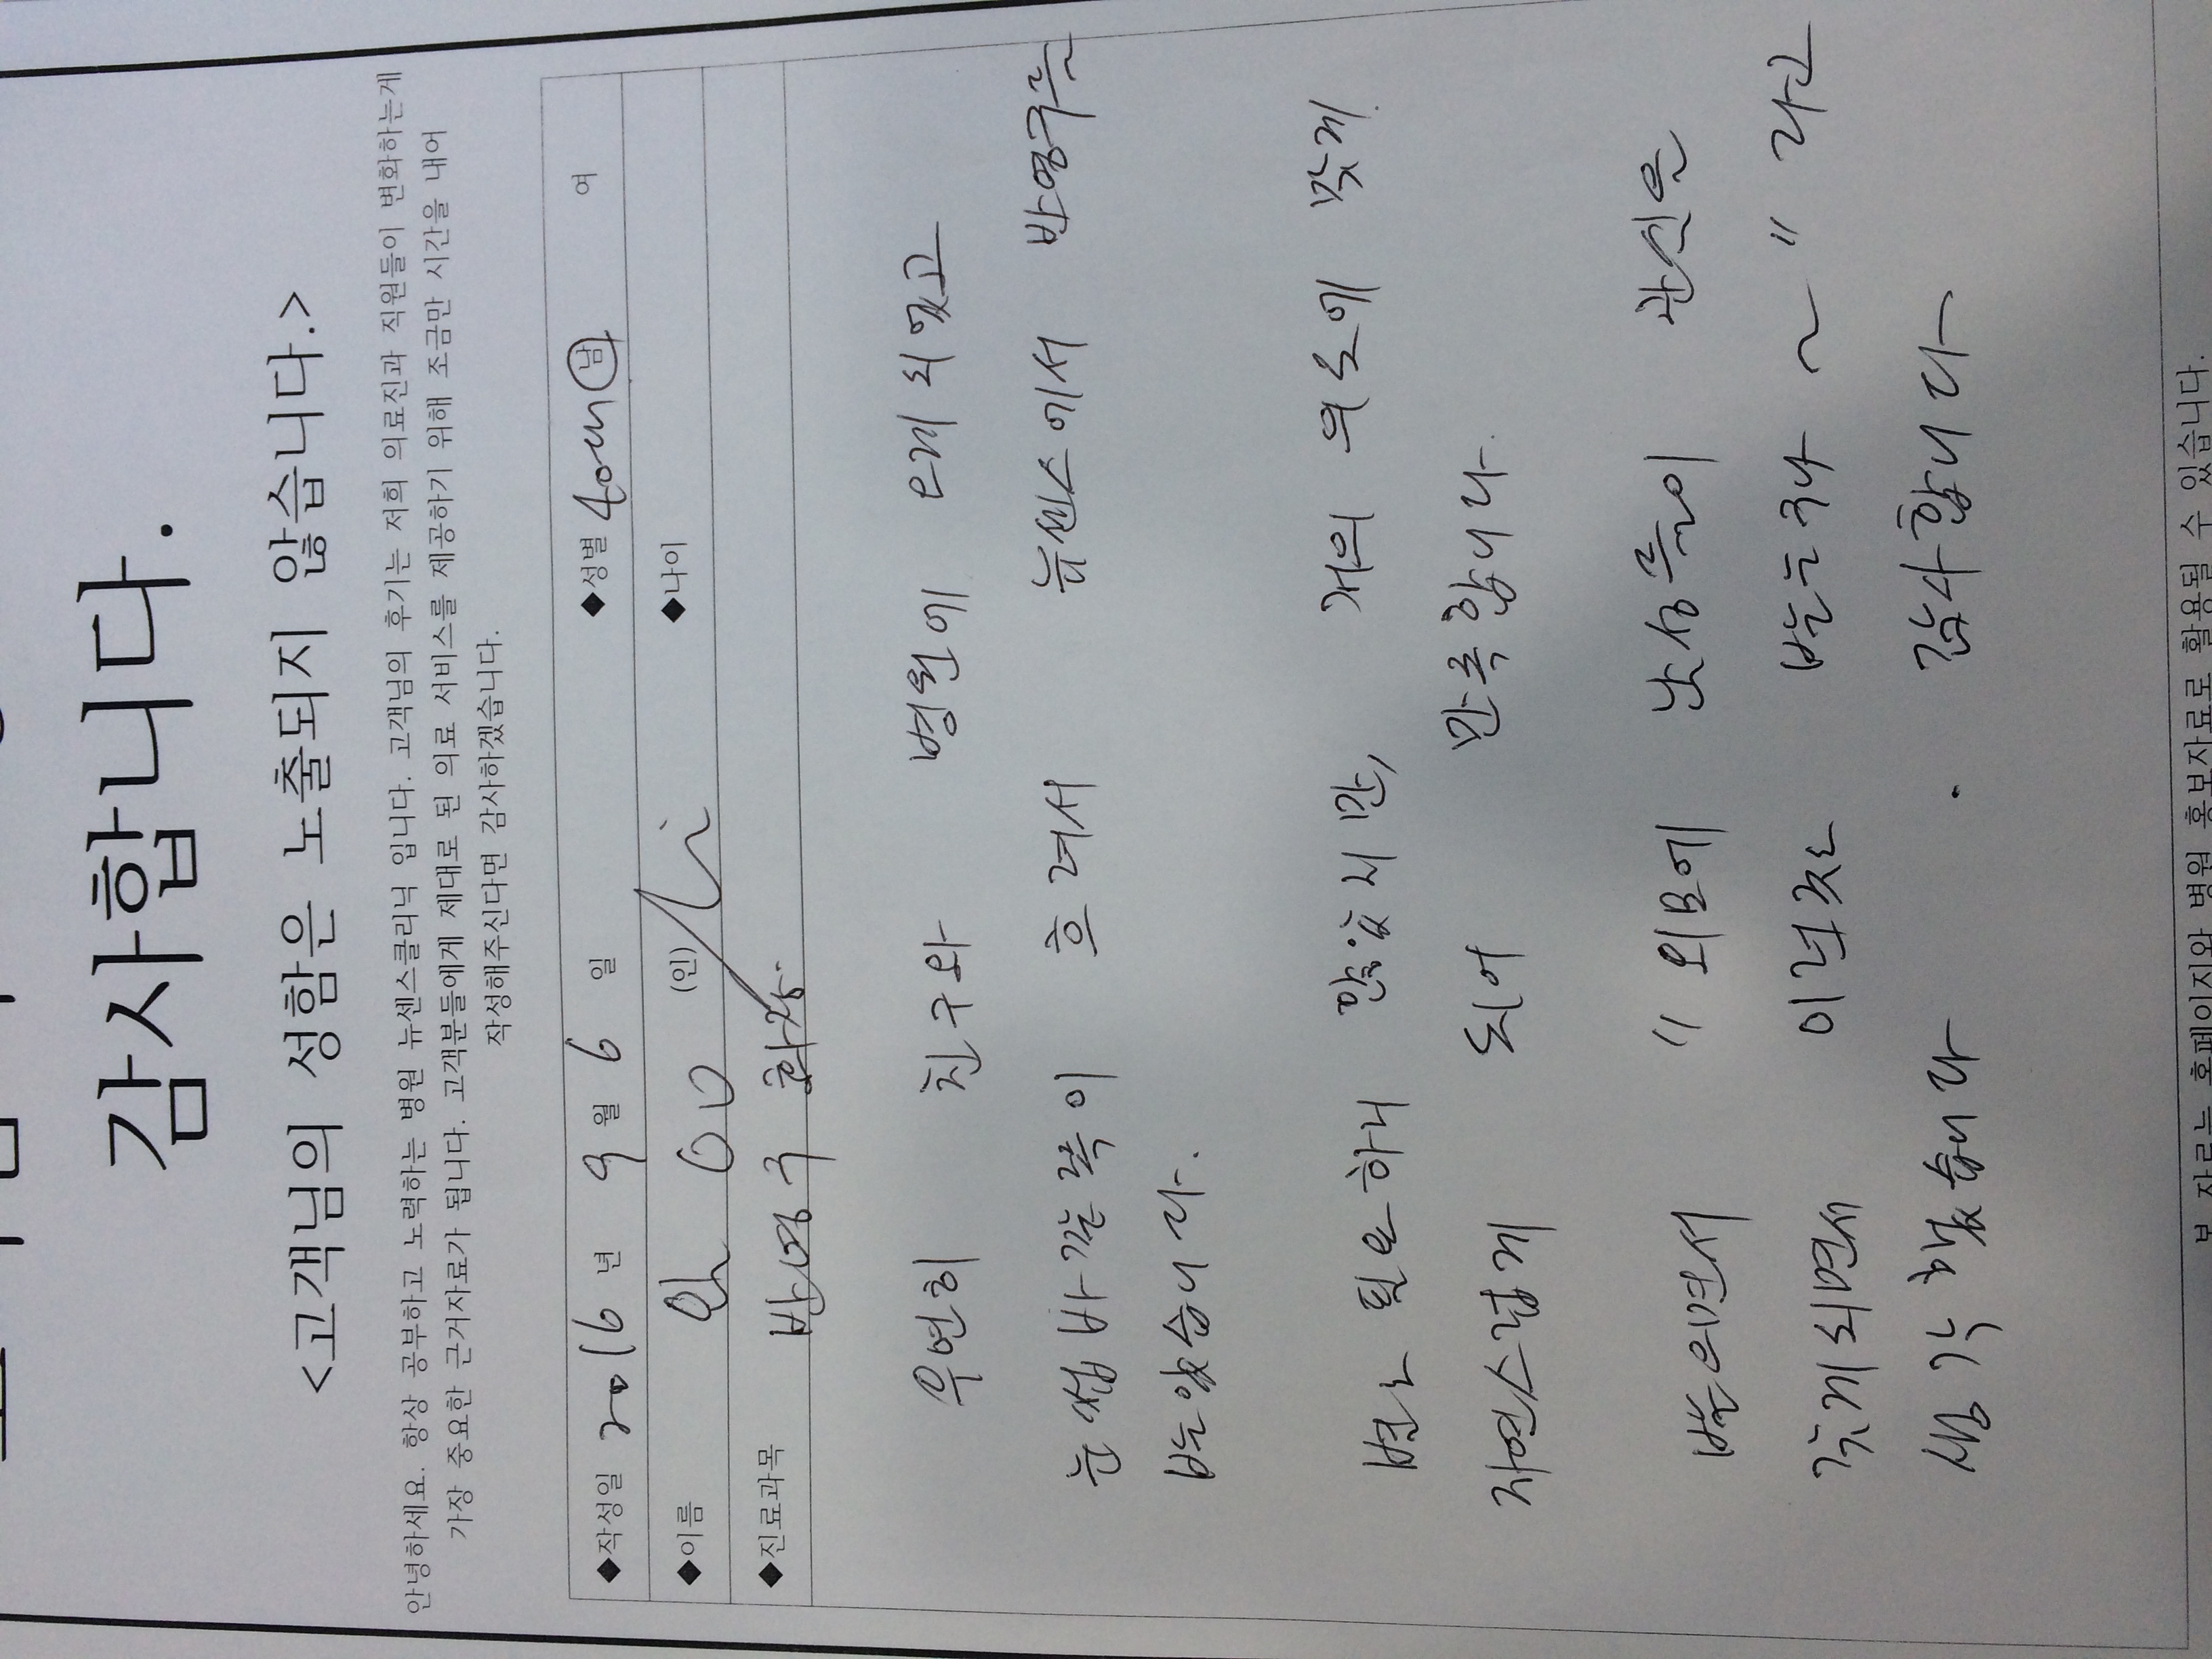 감사합니다.
<고객님의 성함은 노출되지 않습니다.>
안녕하세요. 항상 공부하고 노력하는 병원 뉴센스클리닉 입니다. 고객님의 후기는 저희 의료진과 직원들이 변화하는게
가장 중요한 근거자료가 됩니다. 고객분들에게 제대로 된 의료 서비스를 제공하기 위해 조금만 시간을 내어
작성해주신다면 감사하겠습니다.
◆작성일 2016 년 9 월 6 일 ◆성별 남 여
◆이름 안 (인) ◆나이
◆진료과목 반영구 화장.
우연히 친구와 병원에 오게 되었고
눈썹 바깥쪽이 흐려서 뉴센스에서 반영구를
받았습니다.
받고 필요하니 많았지만, 거의 의도에 맞게
자연스럽게 되어 만족합니다.
받으면서 " 외모에 남성들이 관심을
갖게 되면서 이런것도 받는구나 ~ " 라고
생각했습니다. 감사합니다
본 자료는 홈페이지와 병원 홍보자료로 활용될 수 있습니다.